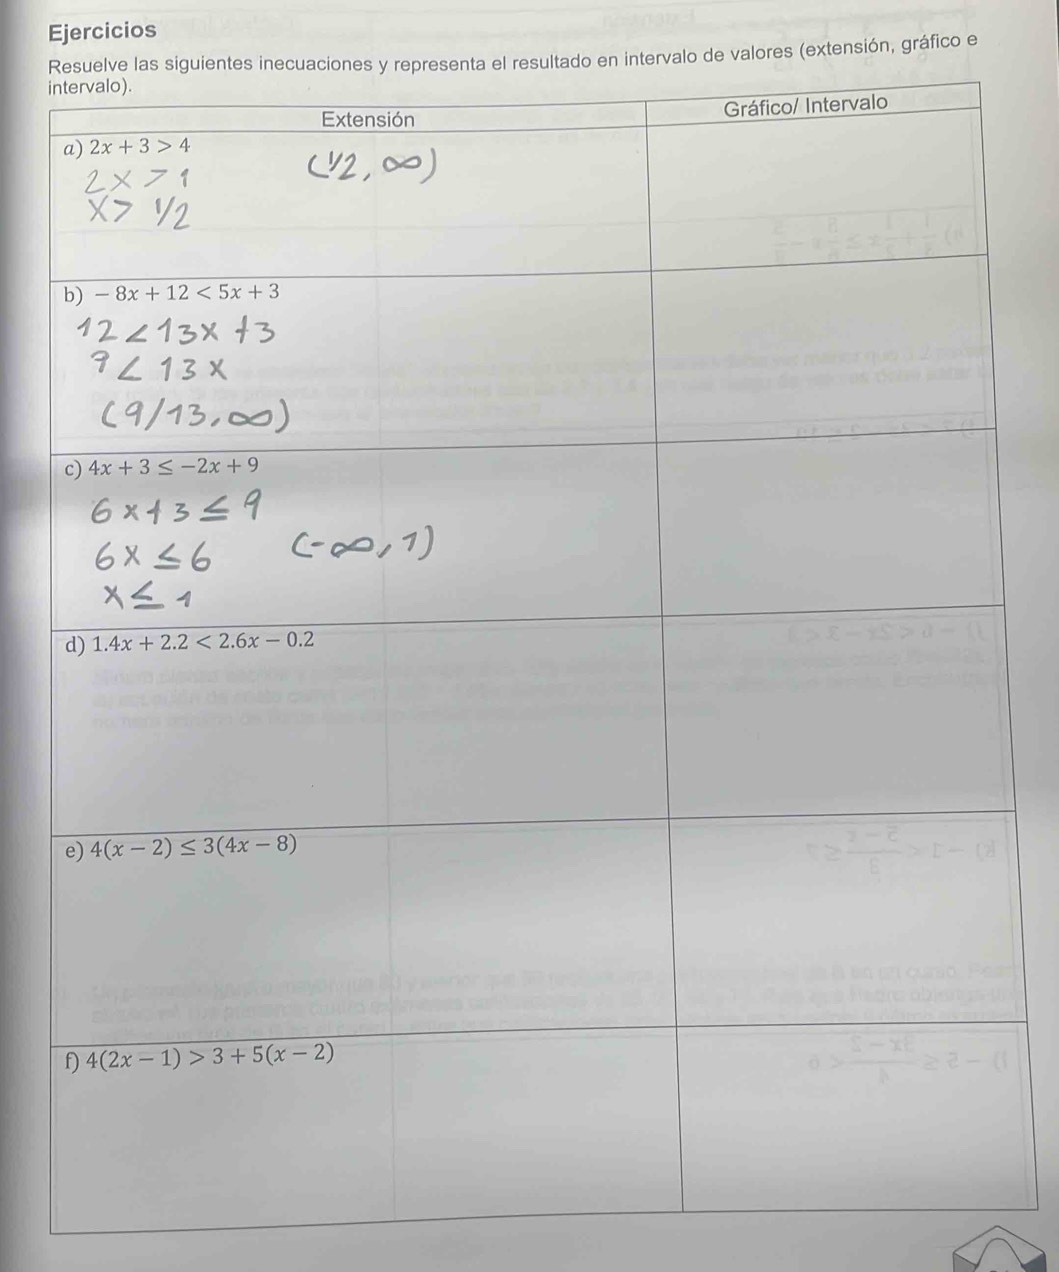 Ejercicios
Resuelve las siguientes inecuaciones y representa el resultado en intervalo de valores (extensión, gráfico e
intervalo).
Extensión
Gráfico/ Intervalo
a) 2x + 3 > 4
2x > 1
x > 1/2
(1/2, ∞)
b) − 8x + 12 < 5x + 3
12 < 13x + 3
9 < 13x
(9/13, ∞)
c) 4x + 3 ≤ −2x + 9
6x + 3 ≤ 9
6x ≤ 6
x ≤ 1
(-∞, 1)
d) 1.4x + 2.2 < 2.6x − 0.2
e) 4(x − 2) ≤ 3(4x − 8)
f) 4(2x − 1) > 3 + 5(x − 2)